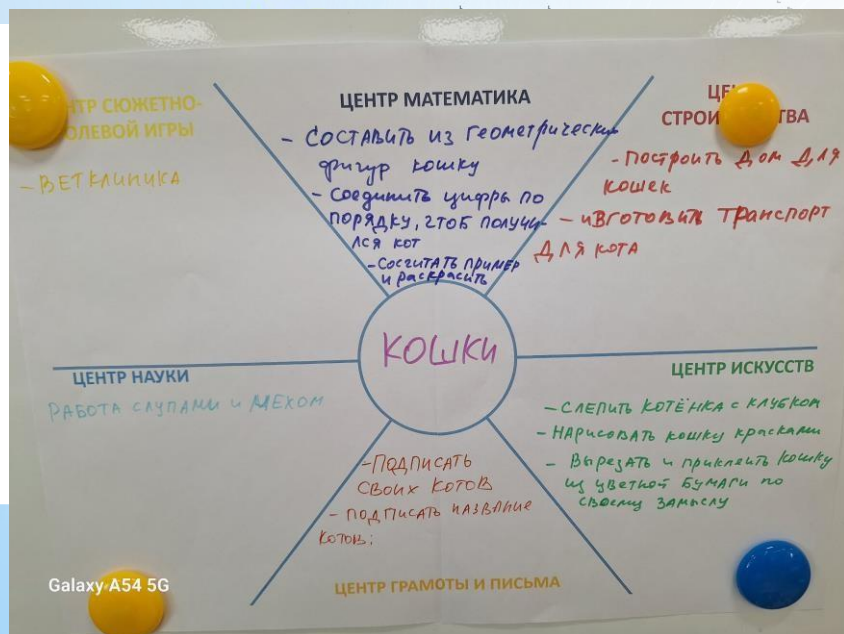 НТР СЮЖЕТНО-
ОЛЕВОЙ ИГРЫ
- ВЕТКЛИНИКА
ЦЕНТР МАТЕМАТИКА
- СОСТАВИТЬ ИЗ ГЕОМЕТРИЧЕСКИХ
ФИГУР КОШКУ
- СОЕДИНИТЬ ЦИФРЫ ПО
ПОРЯДКУ, ЧТОБ ПОЛУЧИ-
ЛСЯ КОТ
- СОСЧИТАТЬ ПРИМЕР
И РАСКРАСИТЬ
ЦЕ
СТРОИ ТВА
- ПОСТРОИТЬ ДОМ ДЛЯ
КОШЕК
- ИЗГОТОВИТЬ ТРАНСПОРТ
ДЛЯ КОТА
КОШКИ
ЦЕНТР НАУКИ
РАБОТА С ЛУПАМИ И МЕХОМ
ЦЕНТР ИСКУССТВ
- СЛЕПИТЬ КОТЁНКА С КЛУБКОМ
- НАРИСОВАТЬ КОШКУ КРАСКАМИ
- ВЫРЕЗАТЬ И ПРИКЛЕИТЬ КОШКУ
ИЗ ЦВЕТНОЙ БУМАГИ ПО
СВОЕМУ ЗАМЫСЛУ
- ПОДПИСАТЬ
СВОИХ КОТОВ
- ПОДПИСАТЬ НАЗВАНИЕ
КОТОВ;
ЦЕНТР ГРАМОТЫ И ПИСЬМА
Galaxy A54 5G